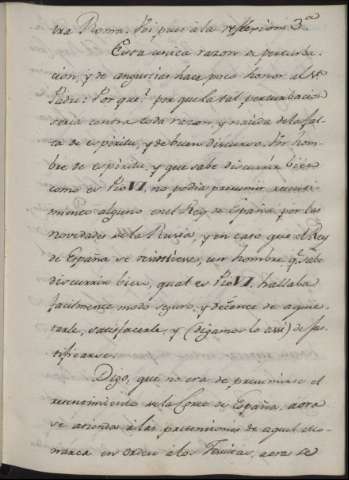 tra Roma. Voi pues á la reflexion 3.ª
Esta unica razon de perturba-
cion, y de angustias hace poco honor al S.to
Padre: Por que? porque la tal perturbacion
seria contra toda razon, y nacida de la fal-
ta de espiritu, y de buen discurso. Un hom-
bre de espiritu, y que sabe discurrir bien
como es Pio VI, no podia presumir resenti-
miento alguno en el Rey de España por las
novedades de la Rusia, y en caso que el Rey
de España se resintiese, un hombre q.e sabe
discurrir bien, qual es Pio VI, hallaba
facilmente modo seguro, y de aquie-
tarle, satisfacerle, y (digamoslo assi) de jus-
tificarse.
Digo, que no era de presumirse el
resentimiento de la Corte de España, aora
se atienda á las pretensiones de aquel Mo-
narca en orden á los Jesuitas, aora se